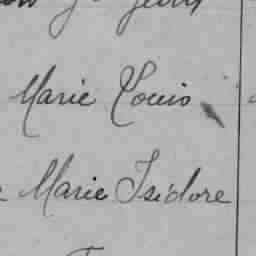 Marie Louis
Marie Isidore